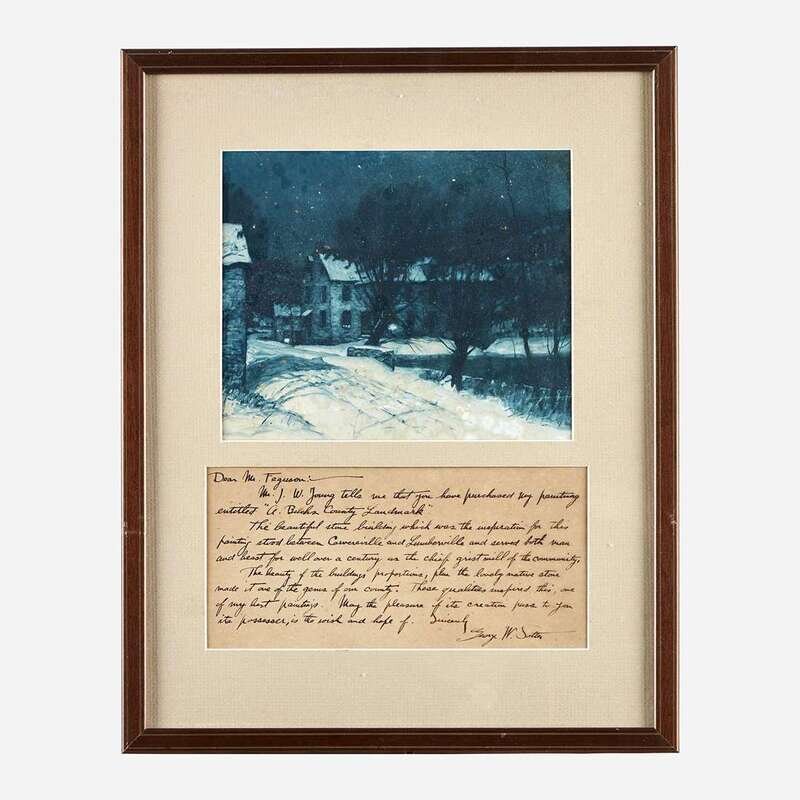 Dear Mr. Ferguson:-
Mr. J. W. Young tells me that you have purchased my painting
entitled "A. Bucks County Landmark"
The beautiful stone building which was the inspiration for this
painting stood between Carversville and Lumberville and served both man
and beast for well over a century as the chief grist mill of the community.
The beauty of the buildings proportions, plus the lovely native stone
made it one of the gems of our county. These qualities inspired this, one
of my best paintings. May the pleasure of its creation pass to you
its possesser, is the wish and hope of. Sincerely
George W. Sotter